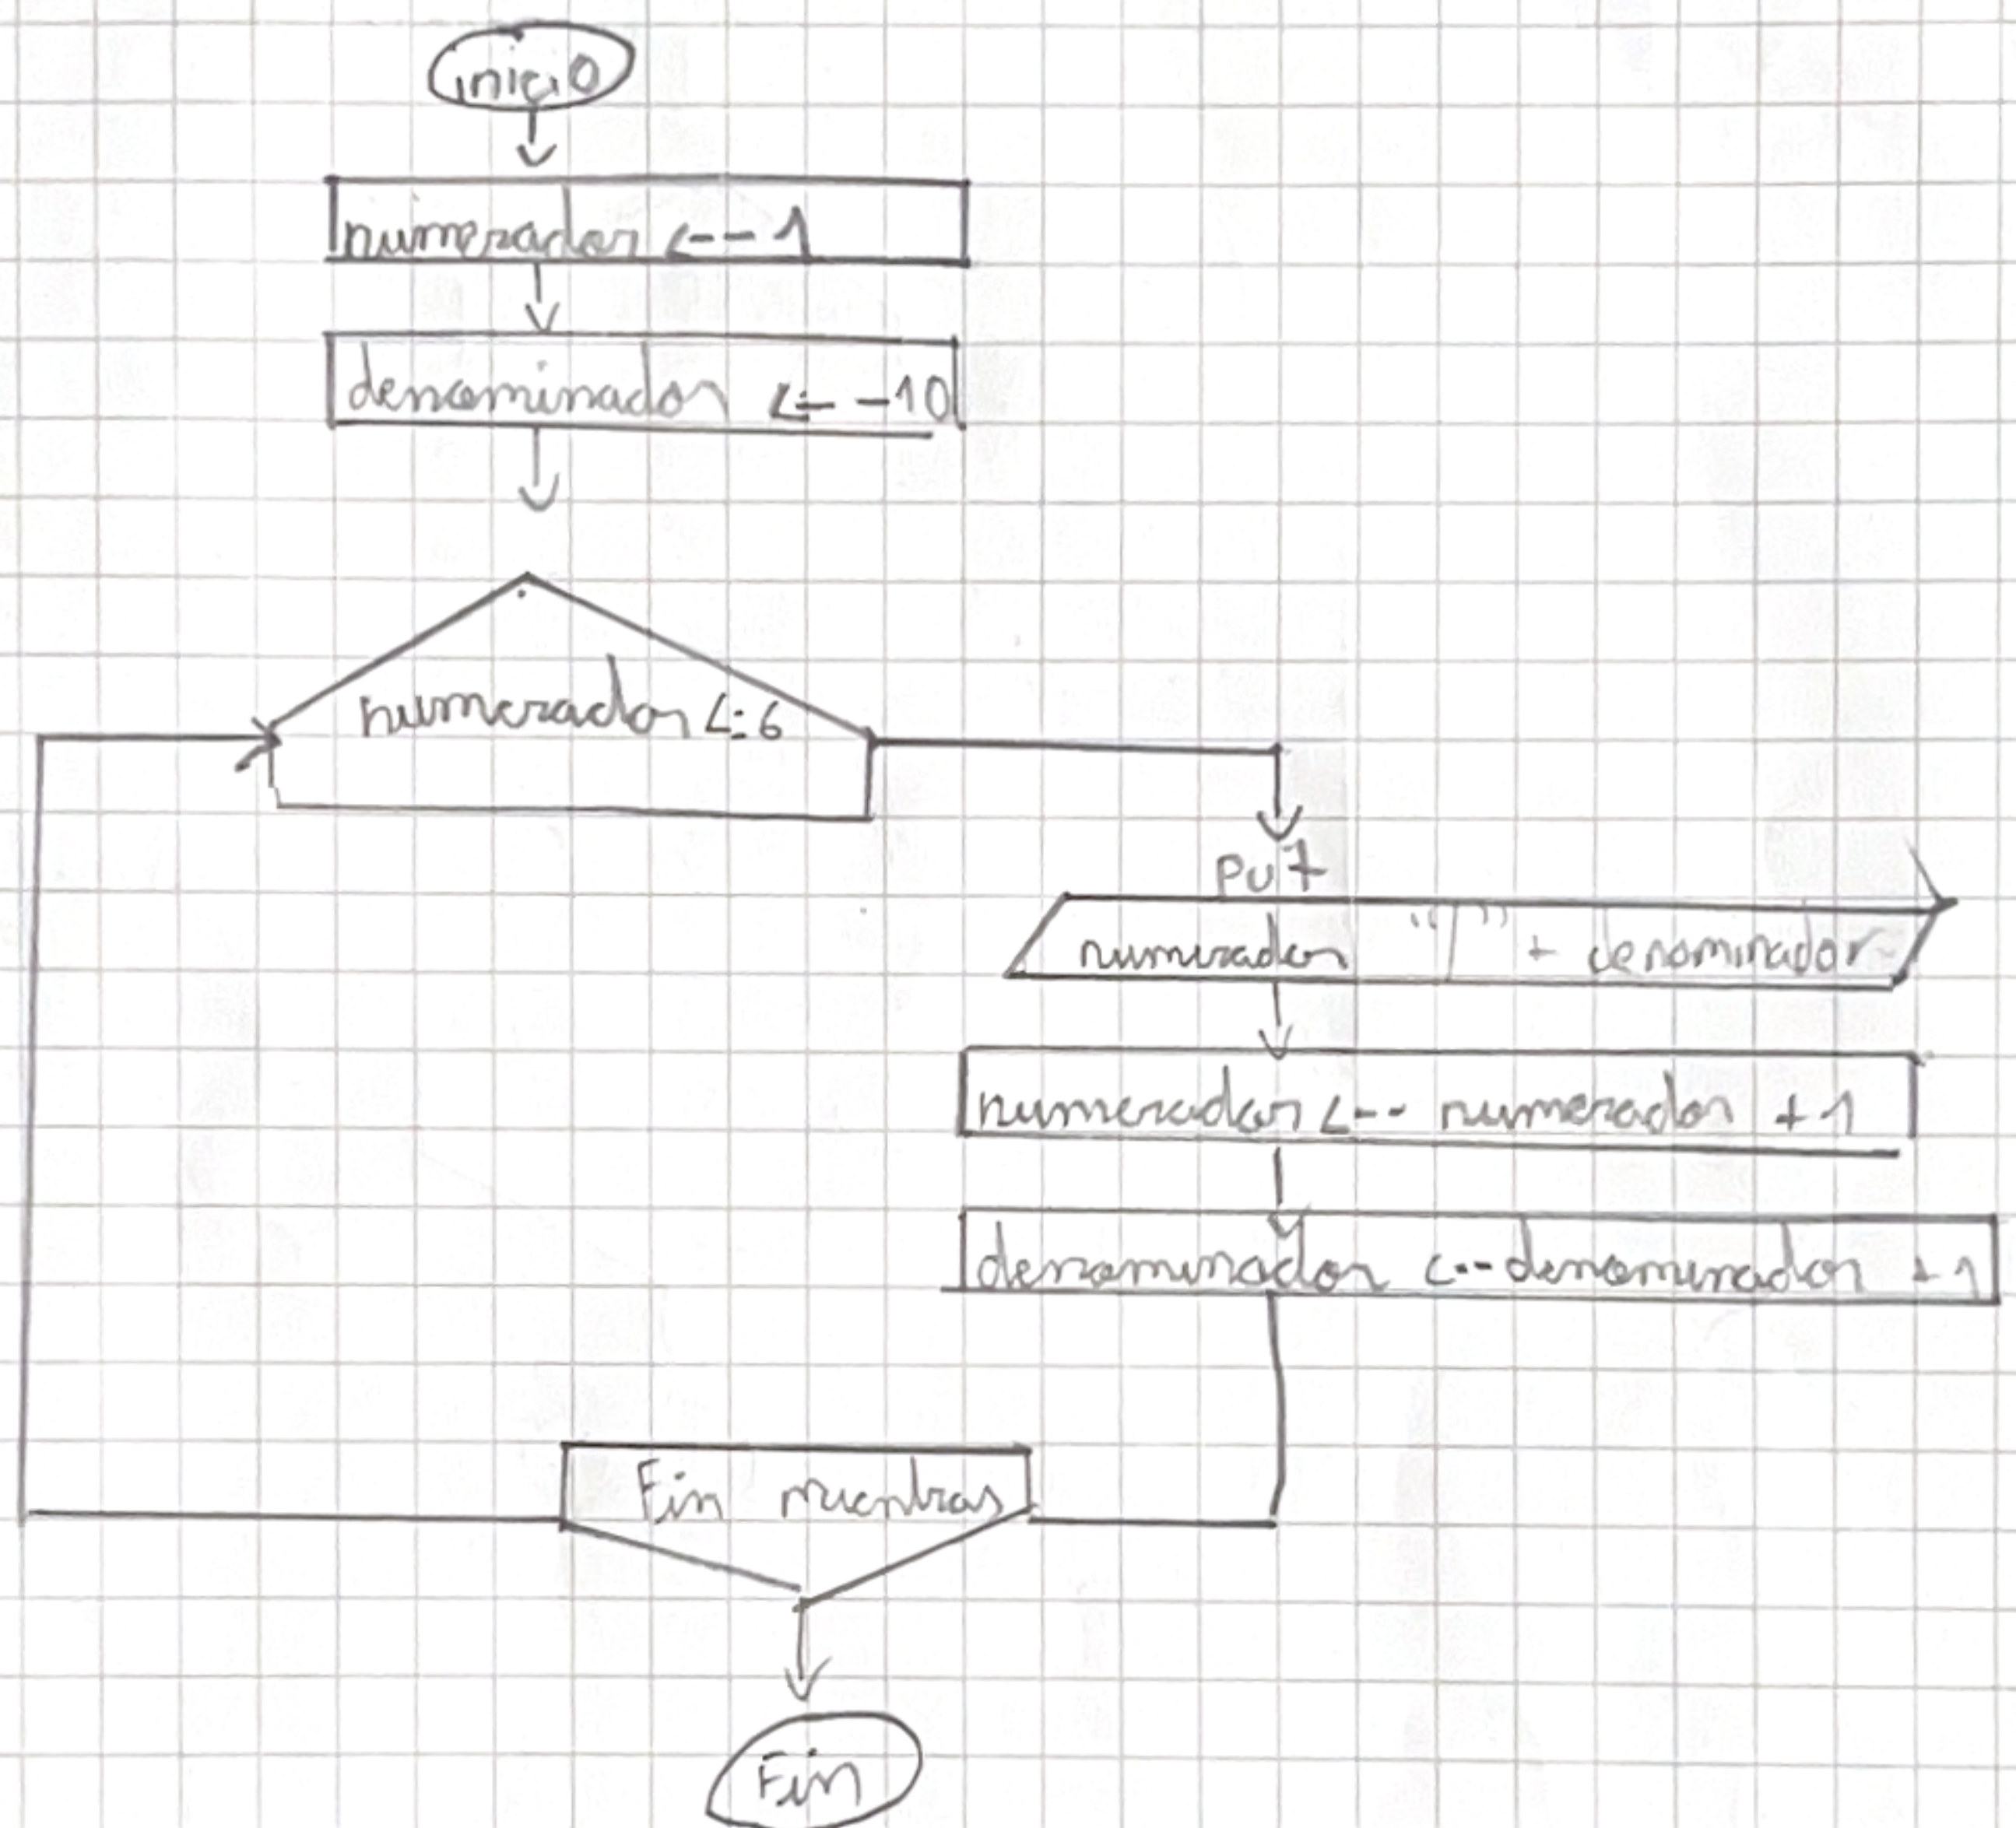 inicio
numerador <-- 1
denominador <- -10
numerador <= 6
put
numerador "/" + denominador
numerador <-- numerador + 1
denominador <-- denominador + 1
Fin mientras
Fin